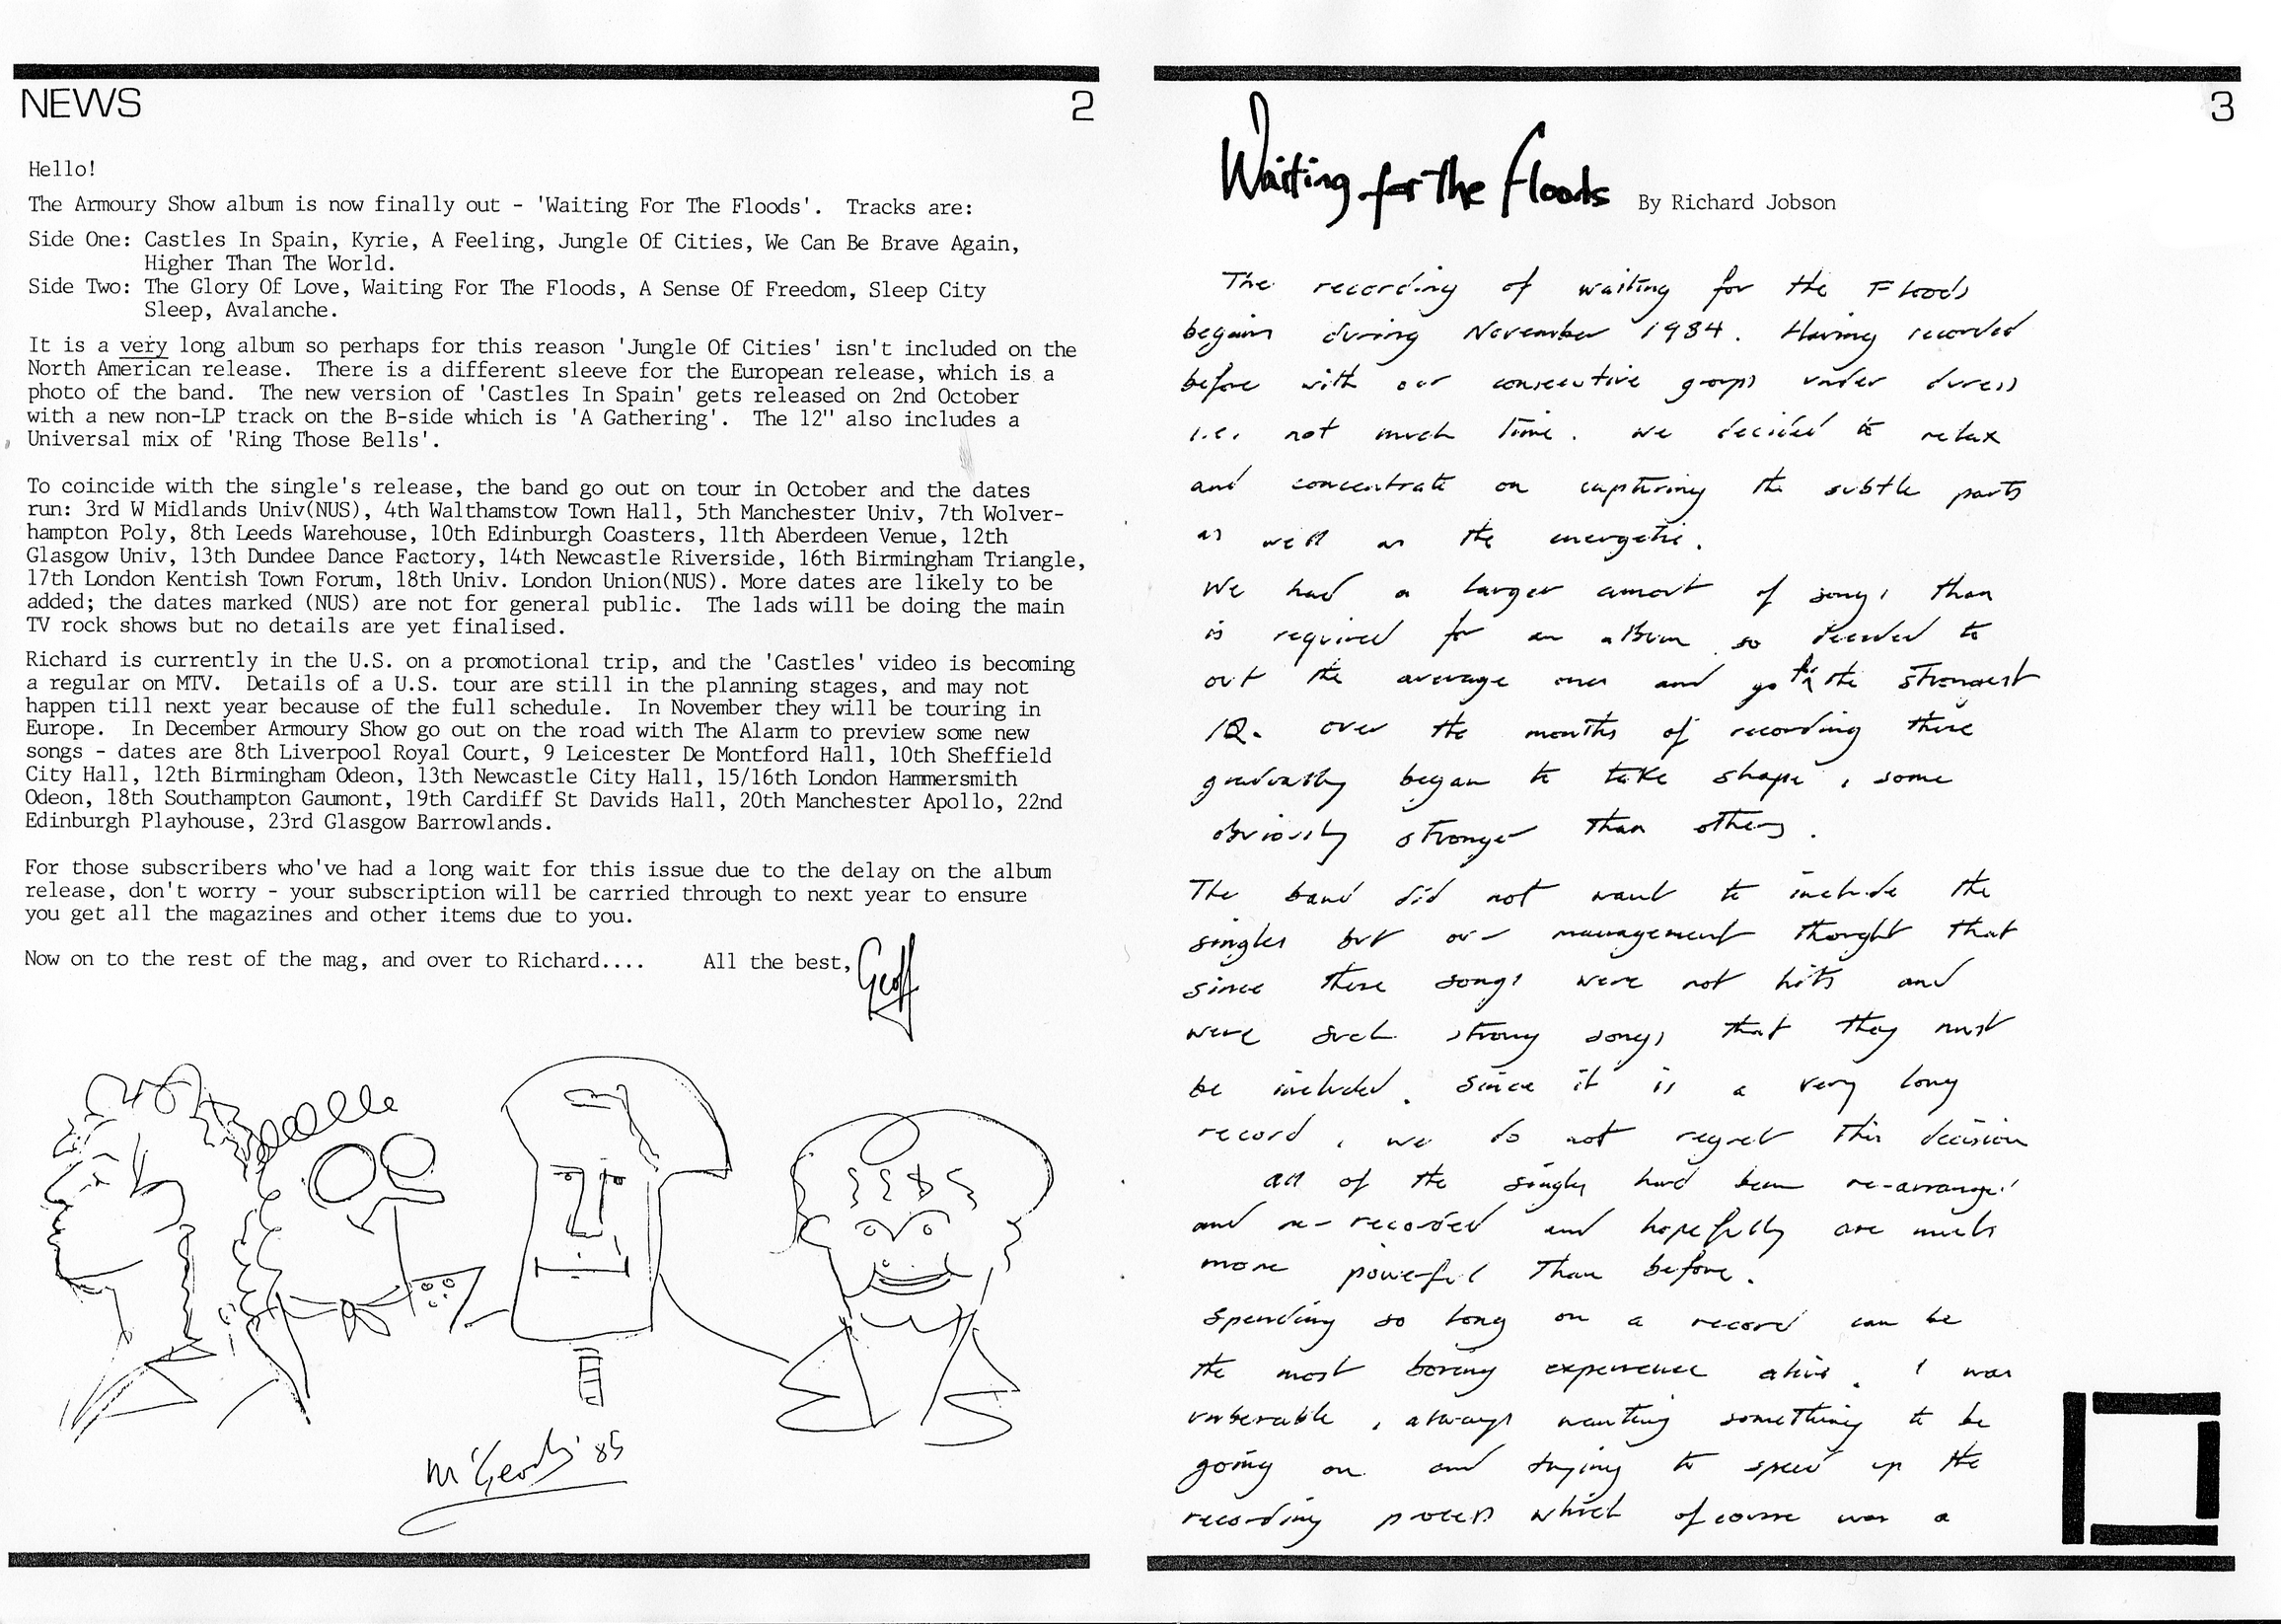 NEWS
2
Hello!
The Armoury Show album is now finally out - 'Waiting For The Floods'. Tracks are:
Side One: Castles In Spain, Kyrie, A Feeling, Jungle Of Cities, We Can Be Brave Again,
Higher Than The World.
Side Two: The Glory Of Love, Waiting For The Floods, A Sense Of Freedom, Sleep City
Sleep, Avalanche.
It is a very long album so perhaps for this reason 'Jungle Of Cities' isn't included on the
North American release. There is a different sleeve for the European release, which is a
photo of the band. The new version of 'Castles In Spain' gets released on 2nd October
with a new non-LP track on the B-side which is 'A Gathering'. The 12" also includes a
Universal mix of 'Ring Those Bells'.
To coincide with the single's release, the band go out on tour in October and the dates
run: 3rd W Midlands Univ(NUS), 4th Walthamstow Town Hall, 5th Manchester Univ, 7th Wolver-
hampton Poly, 8th Leeds Warehouse, 10th Edinburgh Coasters, 11th Aberdeen Venue, 12th
Glasgow Univ, 13th Dundee Dance Factory, 14th Newcastle Riverside, 16th Birmingham Triangle,
17th London Kentish Town Forum, 18th Univ. London Union(NUS). More dates are likely to be
added; the dates marked (NUS) are not for general public. The lads will be doing the main
TV rock shows but no details are yet finalised.
Richard is currently in the U.S. on a promotional trip, and the 'Castles' video is becoming
a regular on MTV. Details of a U.S. tour are still in the planning stages, and may not
happen till next year because of the full schedule. In November they will be touring in
Europe. In December Armoury Show go out on the road with The Alarm to preview some new
songs - dates are 8th Liverpool Royal Court, 9 Leicester De Montford Hall, 10th Sheffield
City Hall, 12th Birmingham Odeon, 13th Newcastle City Hall, 15/16th London Hammersmith
Odeon, 18th Southampton Gaumont, 19th Cardiff St Davids Hall, 20th Manchester Apollo, 22nd
Edinburgh Playhouse, 23rd Glasgow Barrowlands.
For those subscribers who've had a long wait for this issue due to the delay on the album
release, don't worry - your subscription will be carried through to next year to ensure
you get all the magazines and other items due to you.
Now on to the rest of the mag, and over to Richard.... All the best, Geoff
McGeoch '85
3
Waiting for the Floods By Richard Jobson
The recording of waiting for the Floods
began during November 1984. Having recorded
before with our consecutive groups under duress
i.e. not much time. We decided to relax
and concentrate on capturing the subtle parts
as well as the energetic.
We had a larger amount of songs than
is required for an album so decided to
out the average ones and go for the strongest
10. over the months of recording these
gradually began to take shape, some
obviously stronger than others.
The band did not want to include the
singles but our management thought that
since these songs were not hits and
were such strong songs that they must
be included. Since it is a very long
record, we do not regret this decision
all of the singles had been re-arranged
and re-recorded and hopefully are much
more powerful than before.
Spending so long on a record can be
the most boring experience alive. I was
vulnerable, always wanting something to be
going on and trying to speed up the
recording process which of course was a